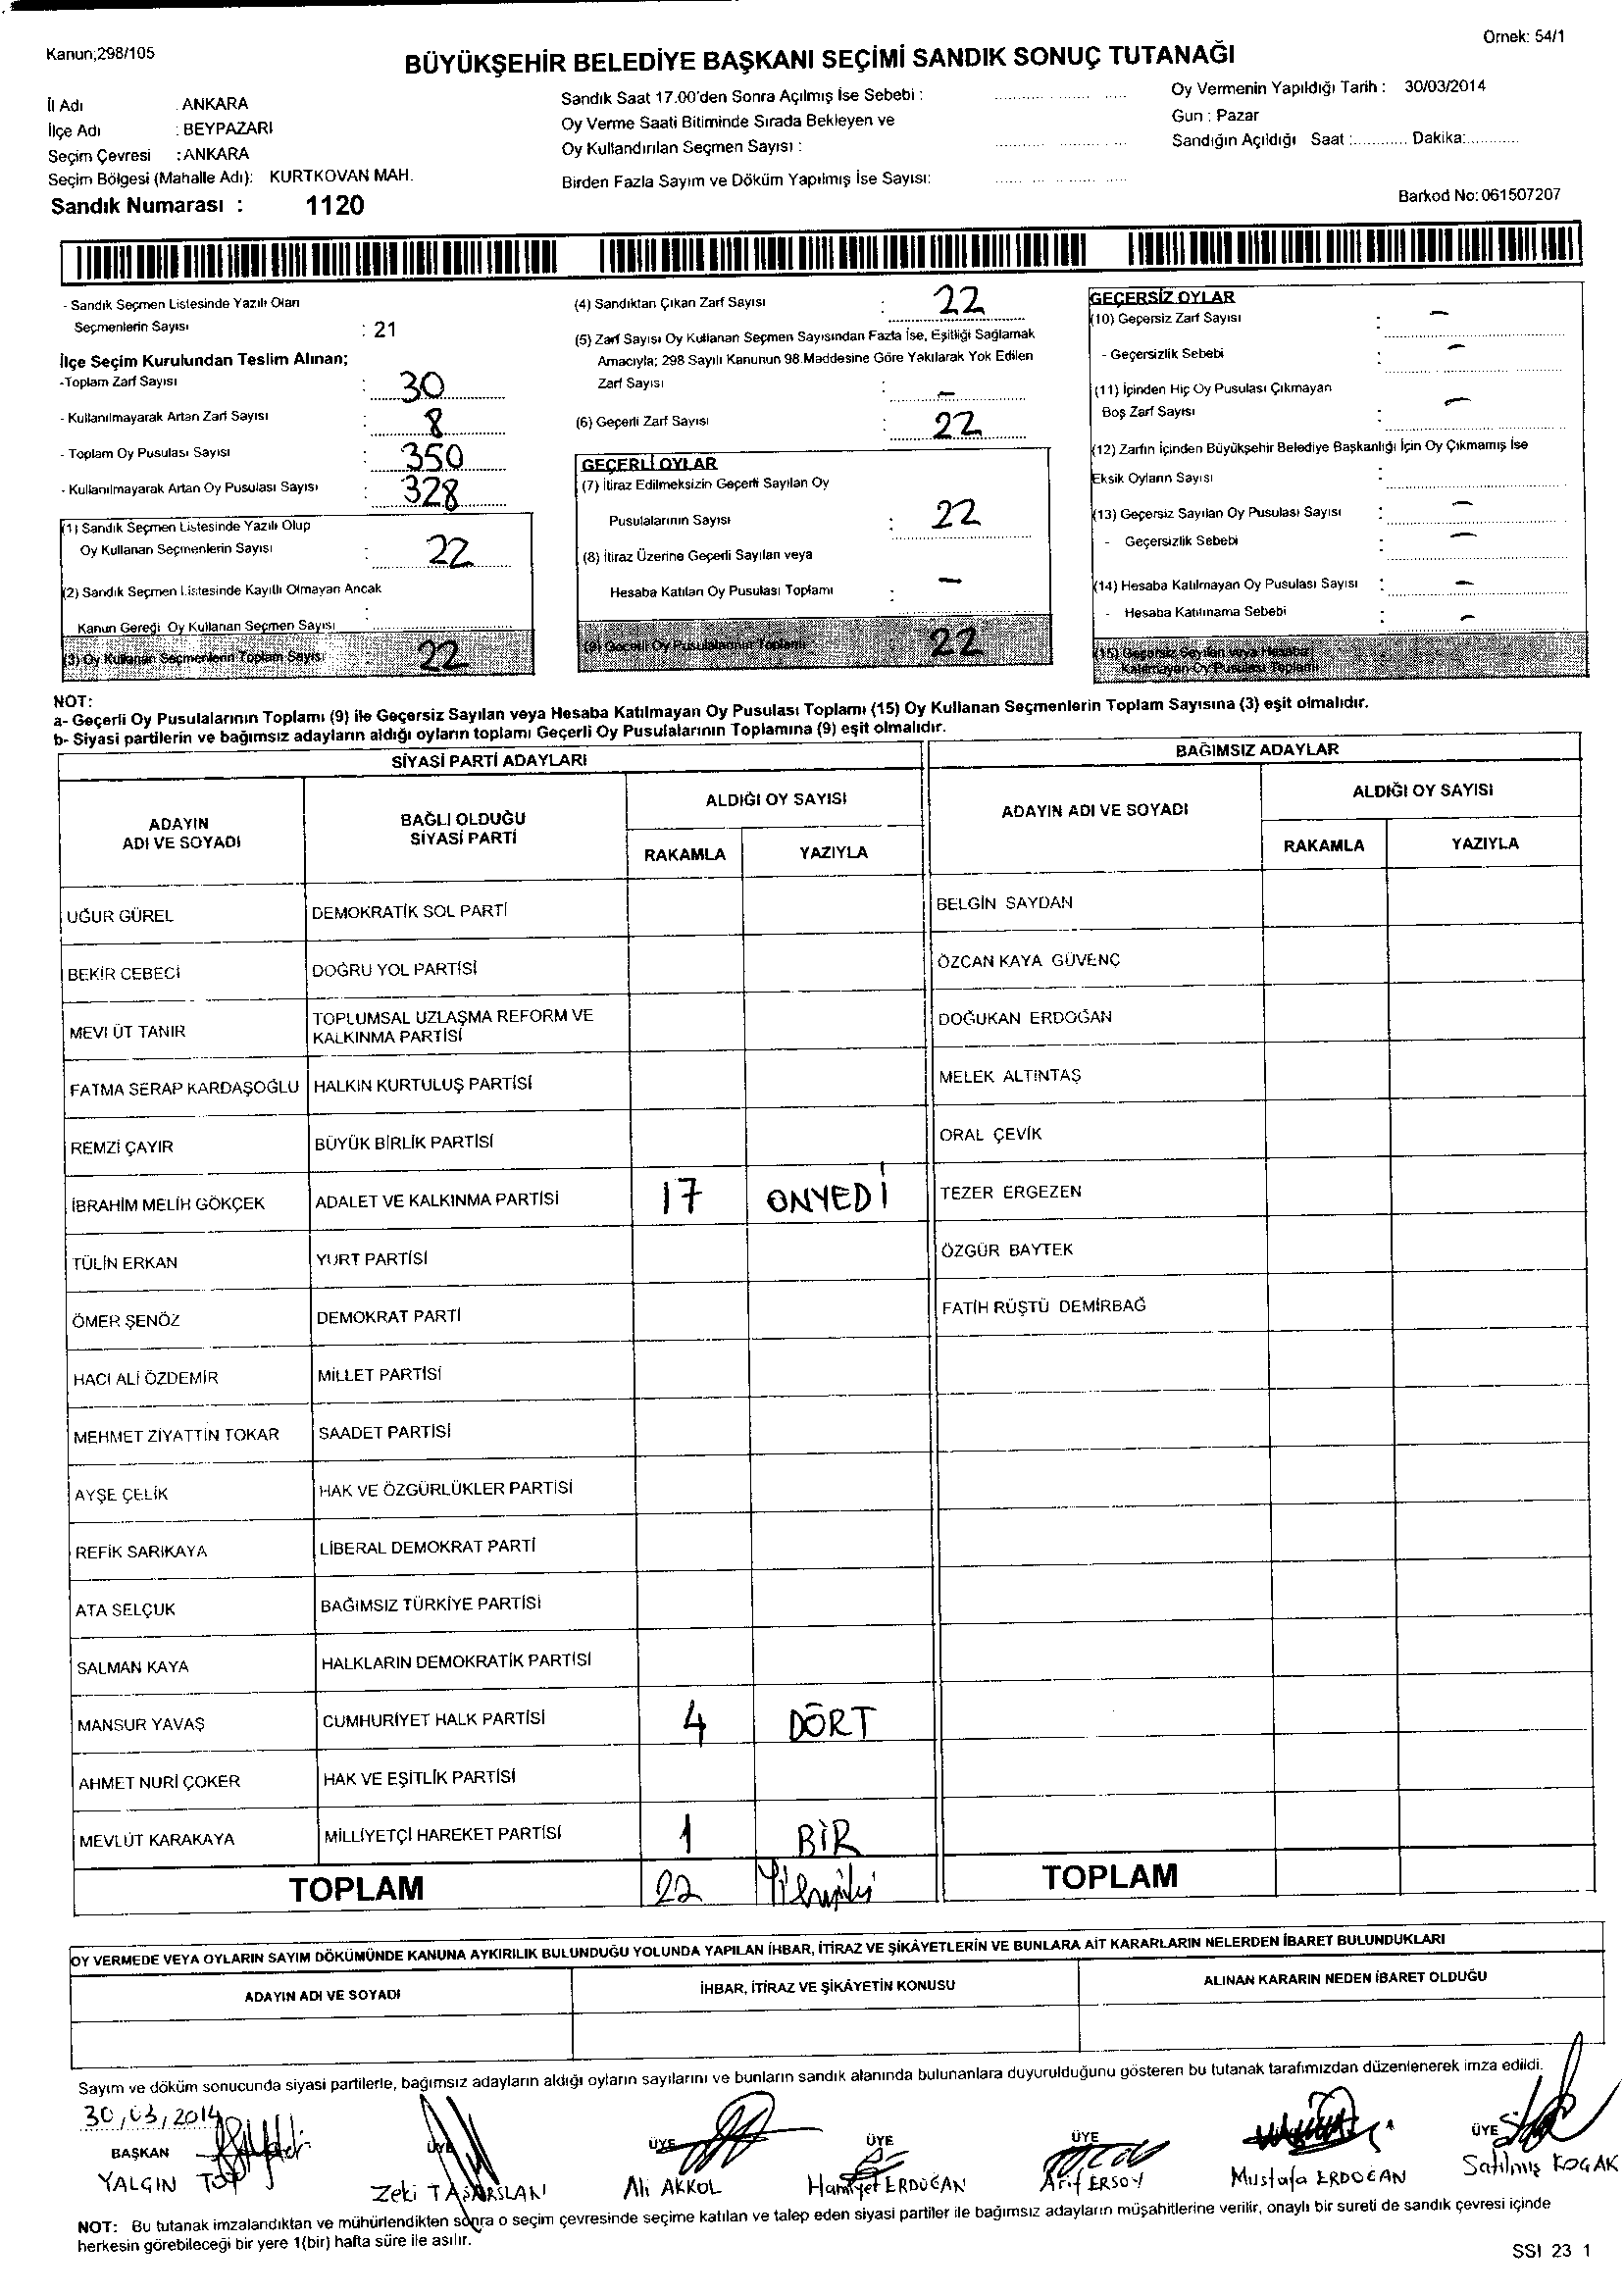 Kanun;298/105
Örnek: 54/1
BÜYÜKŞEHİR BELEDİYE BAŞKANI SEÇİMİ SANDIK SONUÇ TUTANAĞI
İl Adı : ANKARA
İlçe Adı : BEYPAZARI
Seçim Çevresi : ANKARA
Seçim Bölgesi (Mahalle Adı): KURTKOVAN MAH.
Sandık Numarası : 1120
Sandık Saat 17.00'den Sonra Açılmış İse Sebebi :
Oy Verme Saati Bitiminde Sırada Bekleyen ve
Oy Kullandırılan Seçmen Sayısı :
Birden Fazla Sayım ve Döküm Yapılmış İse Sayısı:
Oy Vermenin Yapıldığı Tarih : 30/03/2014
Gun : Pazar
Sandığın Açıldığı Saat :............ Dakika:............
Barkod No: 061507207
- Sandık Seçmen Listesinde Yazılı Olan
Seçmenlerin Sayısı : 21
İlçe Seçim Kurulundan Teslim Alınan;
-Toplam Zarf Sayısı : 30
- Kullanılmayarak Artan Zarf Sayısı : 8
- Toplam Oy Pusulası Sayısı : 350
- Kullanılmayarak Artan Oy Pusulası Sayısı : 328
(1) Sandık Seçmen Listesinde Yazılı Olup
Oy Kullanan Seçmenlerin Sayısı : 22
(2) Sandık Seçmen Listesinde Kayıtlı Olmayan Ancak
Kanun Gereği Oy Kullanan Seçmen Sayısı :
(3) Oy Kullanan Seçmenlerin Toplam Sayısı 22
(4) Sandıktan Çıkan Zarf Sayısı : 22
(5) Zarf Sayısı Oy Kullanan Seçmen Sayısından Fazla İse, Eşitliği Sağlamak
Amacıyla; 298 Sayılı Kanunun 98.Maddesine Göre Yakılarak Yok Edilen
Zarf Sayısı : -
(6) Geçerli Zarf Sayısı : 22
GEÇERLİ OYLAR
(7) İtiraz Edilmeksizin Geçerli Sayılan Oy
Pusulalarının Sayısı : 22
(8) İtiraz Üzerine Geçerli Sayılan veya
Hesaba Katılan Oy Pusulası Toplamı : -
(9) Geçerli Oy Pusulalarının Toplamı : 22
GEÇERSİZ OYLAR
(10) Geçersiz Zarf Sayısı : -
- Geçersizlik Sebebi : -
(11) İçinden Hiç Oy Pusulası Çıkmayan
Boş Zarf Sayısı : -
(12) Zarfın İçinden Büyükşehir Belediye Başkanlığı İçin Oy Çıkmamış İse
Eksik Oyların Sayısı :
(13) Geçersiz Sayılan Oy Pusulası Sayısı : -
- Geçersizlik Sebebi : -
(14) Hesaba Katılmayan Oy Pusulası Sayısı : -
- Hesaba Katılmama Sebebi : -
(15) Geçersiz Sayılan veya Hesaba
Katılmayan Oy Pusulası Toplamı
NOT:
a- Geçerli Oy Pusulalarının Toplamı (9) ile Geçersiz Sayılan veya Hesaba Katılmayan Oy Pusulası Toplamı (15) Oy Kullanan Seçmenlerin Toplam Sayısına (3) eşit olmalıdır.
b- Siyasi partilerin ve bağımsız adayların aldığı oyların toplamı Geçerli Oy Pusulalarının Toplamına (9) eşit olmalıdır.
SİYASİ PARTİ ADAYLARI
ADAYIN ADI VE SOYADI
BAĞLI OLDUĞU SİYASİ PARTİ
ALDIĞI OY SAYISI
RAKAMLA YAZIYLA
UĞUR GÜREL DEMOKRATİK SOL PARTİ
BEKİR CEBECİ DOĞRU YOL PARTİSİ
MEVLÜT TANIR TOPLUMSAL UZLAŞMA REFORM VE
KALKINMA PARTİSİ
FATMA SERAP KARDAŞOĞLU HALKIN KURTULUŞ PARTİSİ
REMZİ ÇAYIR BÜYÜK BİRLİK PARTİSİ
İBRAHİM MELİH GÖKÇEK ADALET VE KALKINMA PARTİSİ 17 ONYEDİ
TÜLİN ERKAN YURT PARTİSİ
ÖMER ŞENÖZ DEMOKRAT PARTİ
HACI ALİ ÖZDEMİR MİLLET PARTİSİ
MEHMET ZİYATTİN TOKAR SAADET PARTİSİ
AYŞE ÇELİK HAK VE ÖZGÜRLÜKLER PARTİSİ
REFİK SARIKAYA LİBERAL DEMOKRAT PARTİ
ATA SELÇUK BAĞIMSIZ TÜRKİYE PARTİSİ
SALMAN KAYA HALKLARIN DEMOKRATİK PARTİSİ
MANSUR YAVAŞ CUMHURİYET HALK PARTİSİ 4 DÖRT
AHMET NURİ ÇOKER HAK VE EŞİTLİK PARTİSİ
MEVLÜT KARAKAYA MİLLİYETÇİ HAREKET PARTİSİ 1 BİR
TOPLAM 22 Yirmiiki
BAĞIMSIZ ADAYLAR
ADAYIN ADI VE SOYADI
ALDIĞI OY SAYISI
RAKAMLA YAZIYLA
BELGİN SAYDAN
ÖZCAN KAYA GÜVENÇ
DOĞUKAN ERDOĞAN
MELEK ALTINTAŞ
ORAL ÇEVİK
TEZER ERGEZEN
ÖZGÜR BAYTEK
FATİH RÜŞTÜ DEMİRBAĞ
TOPLAM
OY VERMEDE VEYA OYLARIN SAYIM DÖKÜMÜNDE KANUNA AYKIRILIK BULUNDUĞU YOLUNDA YAPILAN İHBAR, İTİRAZ VE ŞİKÂYETLERİN VE BUNLARA AİT KARARLARIN NELERDEN İBARET BULUNDUKLARI
ADAYIN ADI VE SOYADI
İHBAR, İTİRAZ VE ŞİKÂYETİN KONUSU
ALINAN KARARIN NEDEN İBARET OLDUĞU
Sayım ve döküm sonucunda siyasi partilerle, bağımsız adayların aldığı oyların sayılarını ve bunların sandık alanında bulunanlara duyurulduğunu gösteren bu tutanak tarafımızdan düzenlenerek imza edildi.
30,03,2014
BAŞKAN ÜYE ÜYE ÜYE ÜYE ÜYE
YALÇIN TOP Zeki TAŞARSLAN Ali AKKOL Hamiyet ERDOĞAN Arif ERSOY Mustafa ERDOĞAN Satılmış KOÇAK
NOT: Bu tutanak imzalandıktan ve mühürlendikten sonra o seçim çevresinde seçime katılan ve talep eden siyasi partiler ile bağımsız adayların müşahitlerine verilir, onaylı bir sureti de sandık çevresi içinde
herkesin görebileceği bir yere 1(bir) hafta süre ile asılır.
SSI 23 1